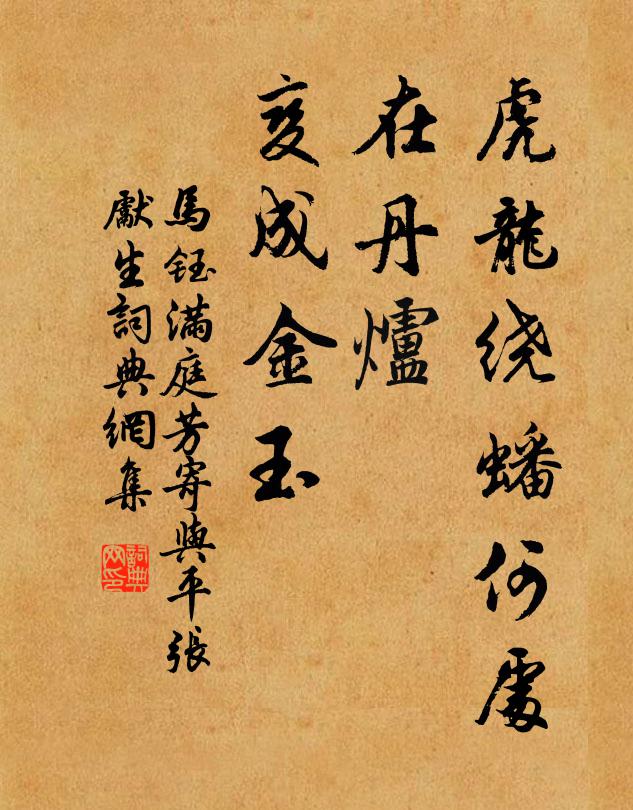 虎龍绕蟠何處
在丹爐
变成金玉
馬鈺滿庭芳寄與平張
獻生詞典網集
詞典
网印